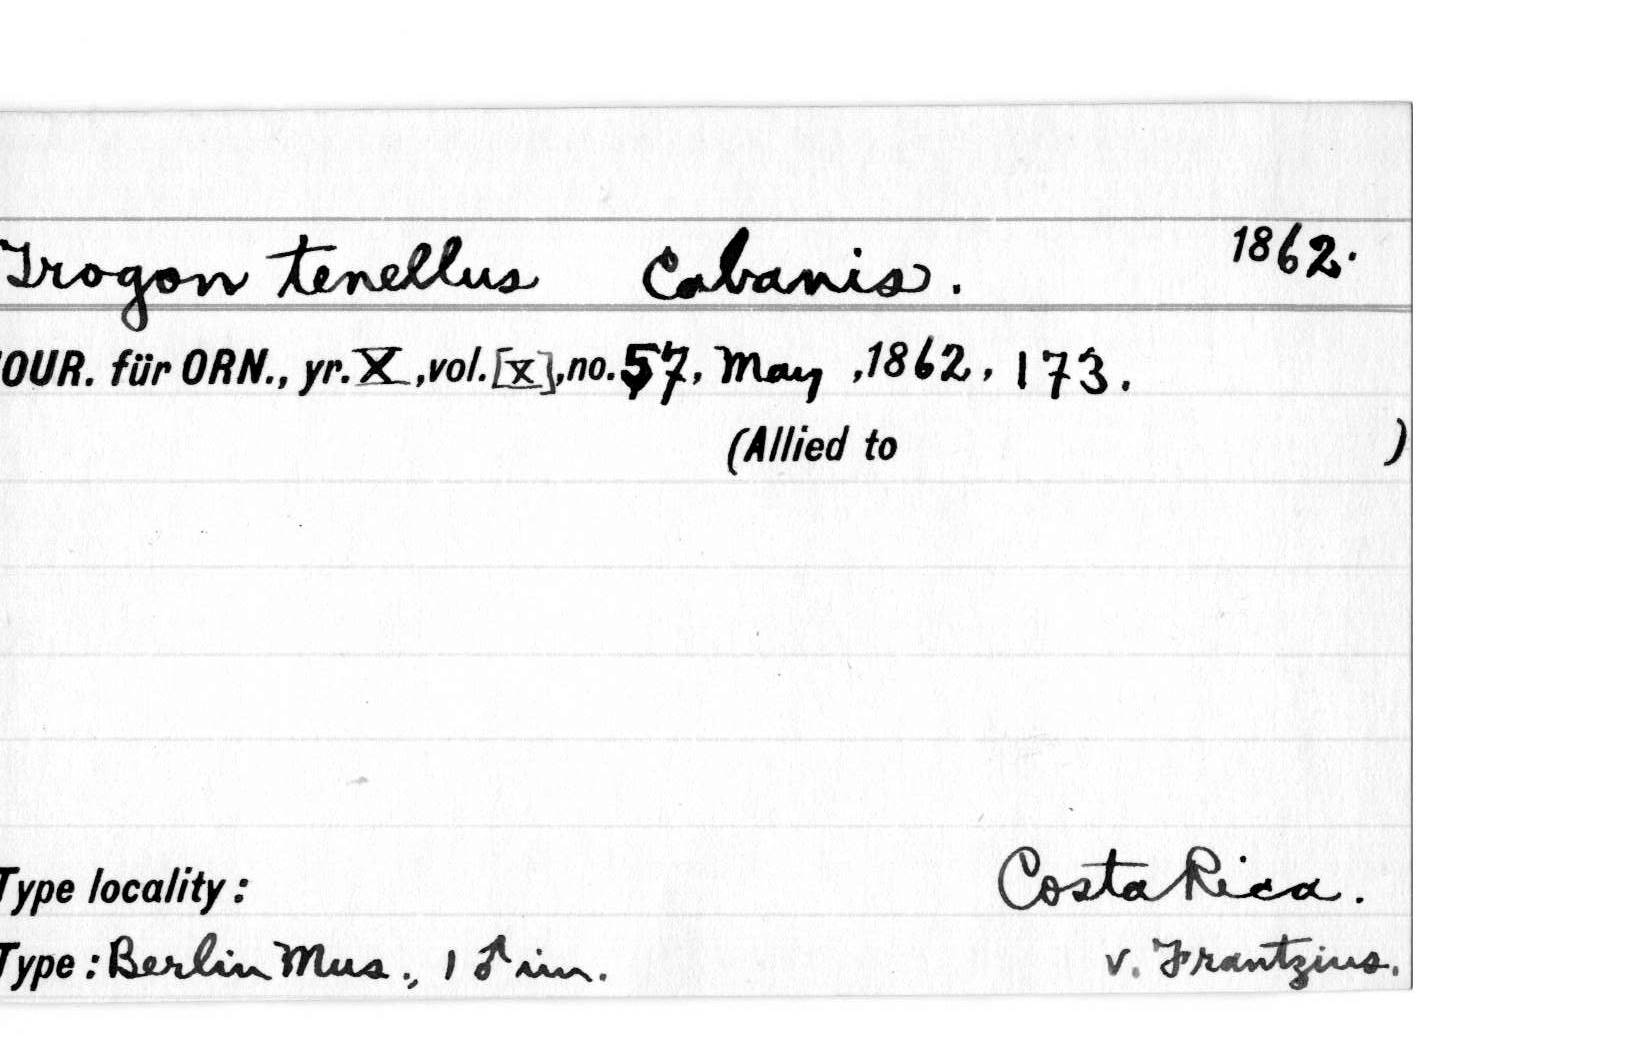 Trogon tenellus Cabanis. 1862.
JOUR. für ORN., yr. X, vol. [X], no. 57, May, 1862, 173.
(Allied to )
Type locality: Costa Rica.
Type: Berlin Mus., 1 ♂ im. v. Frantzius.